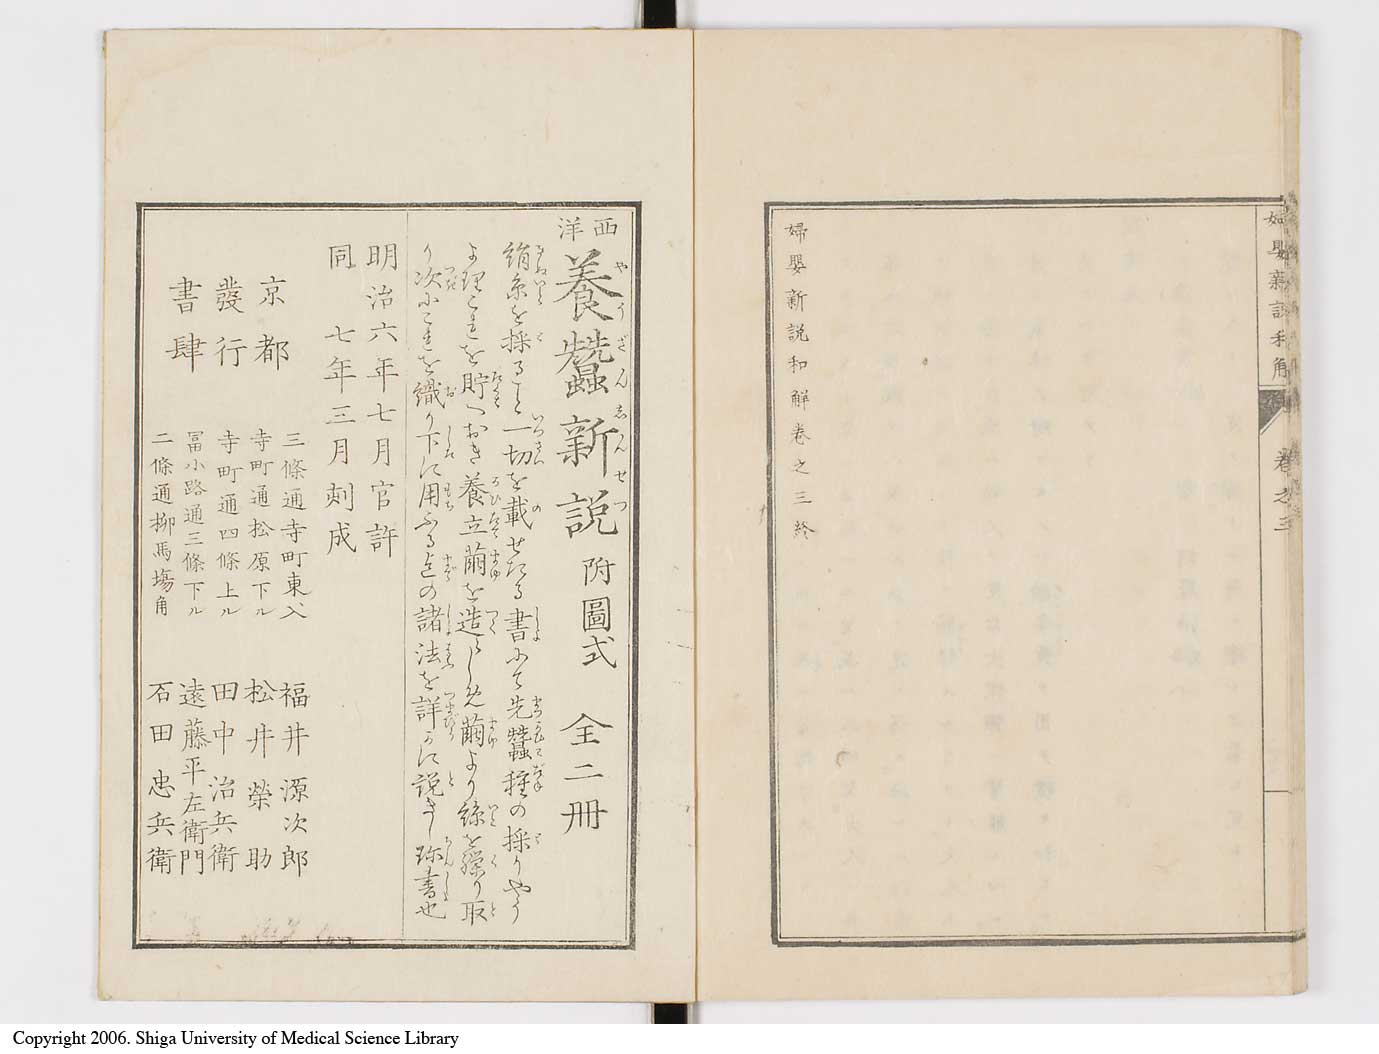 婦嬰新説和解
卷之三
婦嬰新説和解卷之三終
西洋
養蠶新説 附圖式 全二冊
やうざんしんせつ
絹糸を採ること一切を載せたる書にて先蠶種の採りやう
より理これを貯へおき養立繭を造らしめ繭より絲を繰り取
り次にこれを織り下に用ふる迄の諸法を詳かに説きし珎書也
明治六年七月官許
同 七年三月刻成
京都
發行
書肆
三條通寺町東入 福井源次郎
寺町通松原下ル 松井榮助
寺町通四條上ル 田中治兵衛
冨小路通三條下ル 遠藤平左衛門
二條通柳馬塲角 石田忠兵衛
Copyright 2006. Shiga University of Medical Science Library